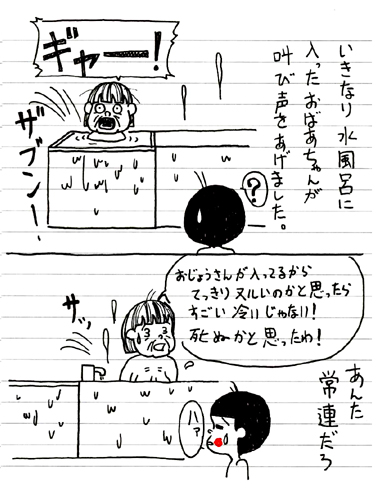 いきなり水風呂に
入ったおばあちゃんが
叫び声をあげました。
ギャー!
ザブンー
?
おじょうさんが入ってるから
てっきりヌルいのかと思ったら
すごい冷いじゃない!
死ぬかと思ったわ!
ザッ
あんた
常連だろ
ハァ